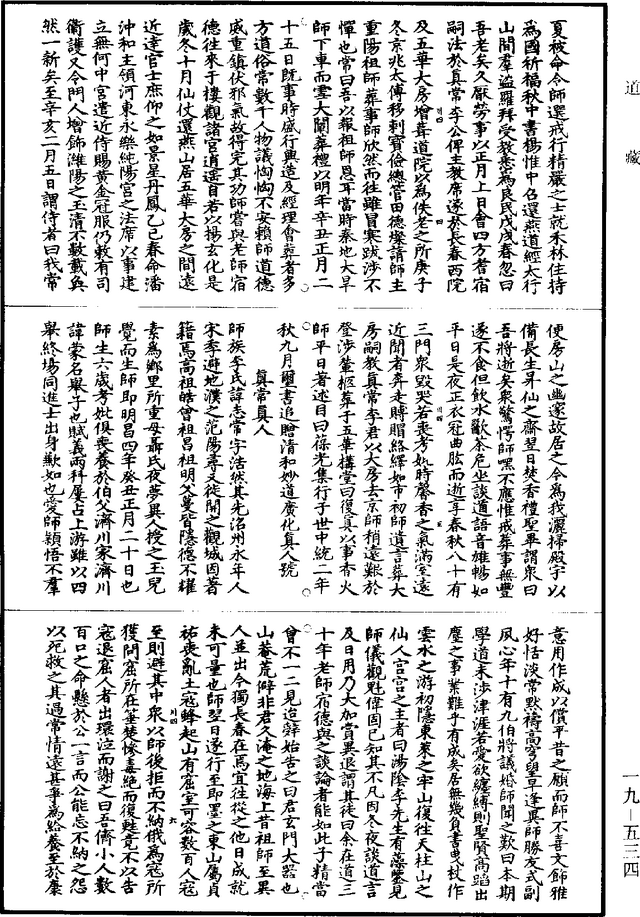 道藏
夏被命令師選戒行精嚴之士就禾林住持
爲國祈福秋中書楊惟中召還燕道經太行
山間羣盜羅拜受教悉爲良民戊戌春忽曰
吾老矣久厭勞事以正月上日會四方耆宿
嗣法於真常李公俾主教席遂於長春西院
及五華大房增葺道院以爲佚老之所庚子
冬京兆太傅移剌寶儉總管田德燦請師主
重陽祖師葬事師欣然而往雖冒寒跋涉不
憚也常曰吾以報祖師恩耳當時秦地大旱
師下車而雪大闡葬禮以明年辛丑正月二
十五日既事時盛行興造及經理會葬者多
方道俗常數千人物議恟恟不安賴師道德
威重鎮伏邪氣故得完其功師嘗與老師宿
德往來于樓觀諸宮逍遥自若以揚玄化是
歲冬十月仙仗還燕山居五華大房之間遠
近達官士庶仰之如景星丹鳳乙巳春命潘
沖和主領河東永樂純陽宮之法席以事建
立無何中宮遣近侍賜黃金冠服仍敕有司
衛護又令門人增飾濰陽之玉清不數載奐
然一新矣至辛亥二月五日謂侍者曰我常
便房山之幽邃故居之今爲我灑掃殿宇以
備長生昇仙之齋翌日焚香禮聖畢謂衆曰
吾將逝矣衆驚愕師嘿不應惟戒葬事無豐
遂不食但飲水歠茶危坐談道語音雄暢如
平日是夜正衣冠曲肱而逝享春秋八十有
三門衆毀哭若喪考妣時麝香之氣滿室遠
近聞者奔走賻賵絡繹如市初師遺言葬大
房嗣教真常李君以大房去京師稍遠艱於
登涉輦柩葬于五華構堂曰復真以事香火
師平日著述目曰葆光集行于世中統二年
秋九月璽書追贈清和妙道廣化真人號
真常真人
師族李氏諱志常字浩然其先洺州永年人
宋季避地濮之范陽尋又徙開之觀城因著
籍焉高祖皓曾祖昌祖明父蔓皆隱德不耀
素爲鄉里所重母聶氏夜夢異人授之玉兒
覺而生師即明昌四年癸丑正月二十日也
師生六歲考妣俱喪養於伯父濟川家濟川
諱蒙名舉子也賦義兩科屢占上游雖以四
舉終場同進士出身歉如也愛師穎悟不羣
意用作成以償平昔之願而師不喜文飾雅
好恬淡常默禱高穹望早逢異師勝友式副
夙心年十有九伯將議婚師聞之歎曰本期
學道未涉津涯若愛欲纏縛則聖賢高蹈出
塵之事業難乎有成矣居無幾負書曳杖作
雲水之游初隱東萊之牢山復徃天柱山之
仙人宮宮之主者曰湯陰李先生有藻鑒見
師儀觀魁偉固已知其不凡因冬夜談道言
及日用乃大加賞異退謂其徒曰余在道三
十年老師宿德與之談論者能如此子精當
曾不一二見造辭始告之曰君玄門大器也
山菴荒僻非君久淹之地海上昔祖師至異
人並出今獨長春在焉宜往從之他日成就
未可量也師翌日遂行至即墨之東山屬貞
祐喪亂土寇蜂起山有窟室可容數百人寇
至則避其中衆以師後拒而不納俄爲寇所
獲問窟所在箠楚慘毒絕而復甦竟不以告
寇退窟人者出環泣而謝之曰吾儕小人數
百口之命懸於公一言而公能忘不納之怨
以死救之其過常情遠甚爭爲給養至於康
一九—五三四